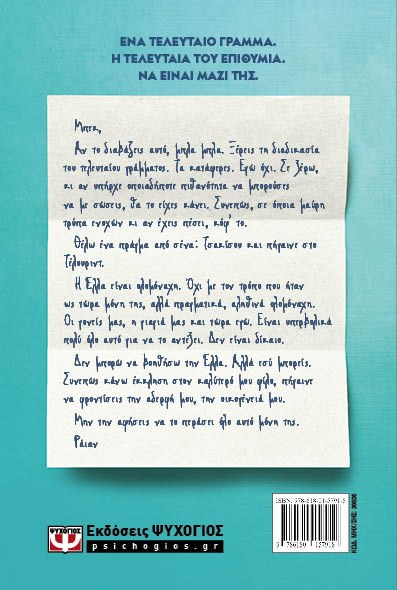 ΕΝΑ ΤΕΛΕΥΤΑΙΟ ΓΡΑΜΜΑ.
Η ΤΕΛΕΥΤΑΙΑ ΤΟΥ ΕΠΙΘΥΜΙΑ.
ΝΑ ΕΙΝΑΙ ΜΑΖΙ ΤΗΣ.
Μπεκ,
Αν το διαβάζεις αυτό, μπλα μπλα. Ξέρεις τη διαδικασία
του τελευταίου γράμματος. Τα κατάφερες. Εγώ όχι. Σε ξέρω,
κι αν υπήρχε οποιαδήποτε πιθανότητα να μπορούσες
να με σώσεις, θα το είχες κάνει. Συνεπώς, σε όποια μαύρη
τρύπα ενοχών κι αν έχεις πέσει, κόφ' το.
Θέλω ένα πράγμα από σένα: Τσακίσου και πήγαινε στο
Τέλουριντ.
Η Έλλα είναι ολομόναχη. Όχι με τον τρόπο που ήταν
ως τώρα μόνη της, αλλά πραγματικά, αληθινά ολομόναχη.
Οι γονείς μας, η γιαγιά μας και τώρα εγώ. Είναι υπερβολικά
πολύ όλο αυτό για να το αντέξει. Δεν είναι δίκαιο.
Δεν μπορώ να βοηθήσω την Έλλα. Αλλά εσύ μπορείς.
Συνεπώς κάνω έκκληση στον καλύτερό μου φίλο, πήγαινε
να φροντίσεις την αδερφή μου, την οικογένειά μου.
Μην την αφήσεις να το περάσει όλο αυτό μόνη της.
Ράιαν
ΨΥΧΟΓΙΟΣ
Εκδόσεις ΨΥΧΟΓΙΟΣ
psichogios.gr
ISBN: 978-618-01-5791-8
9 786180 157918
ΚΩΔ. ΜΗΧ/ΣΗΣ: